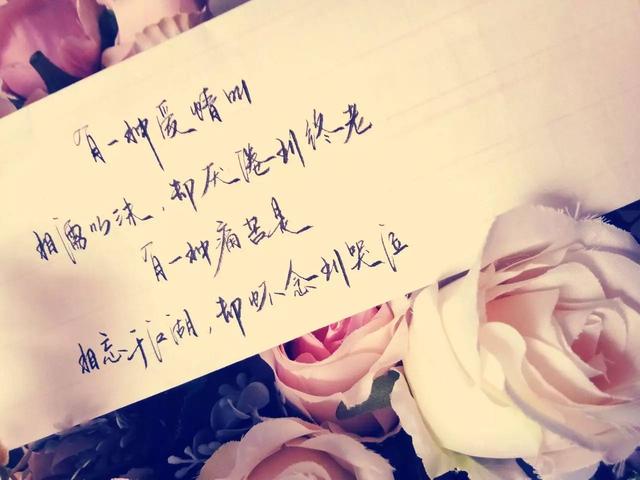 有一种爱情叫
相濡以沫，却厌倦到终老
有一种痛苦是
相忘于江湖，却怀念到哭泣